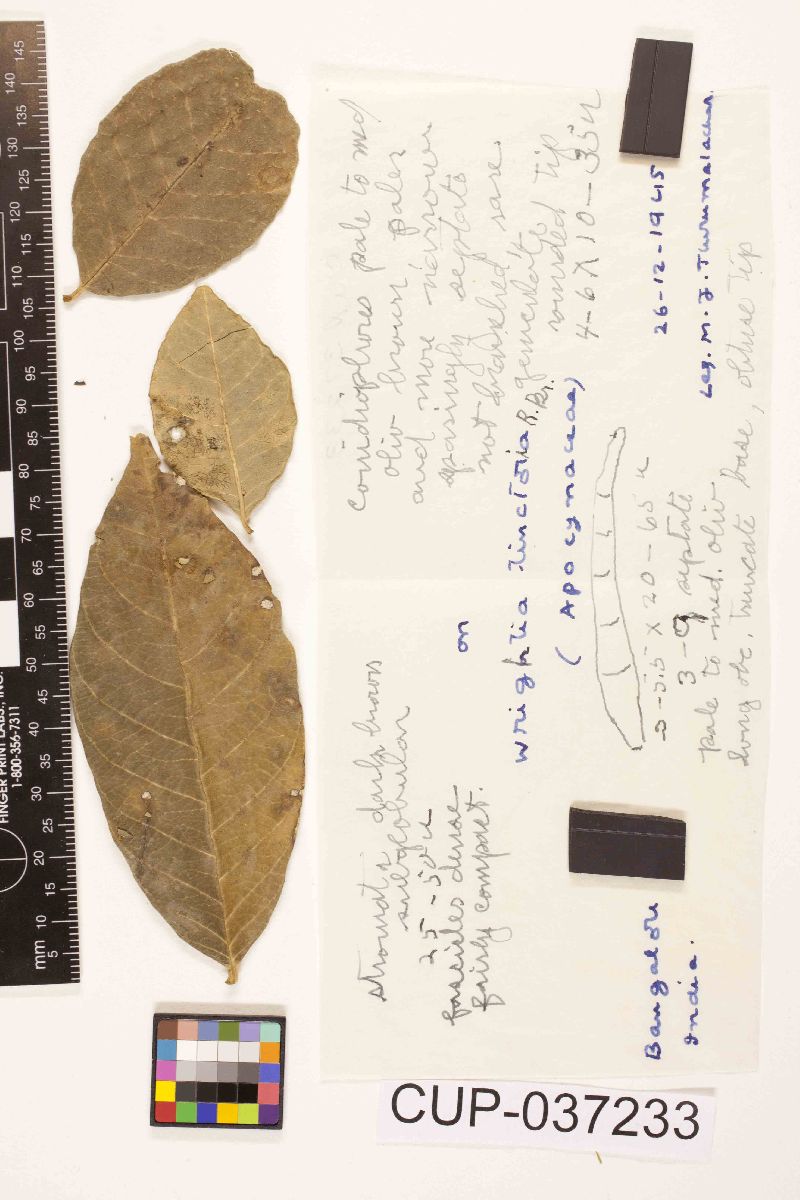 stromata dark brown
subglobular
25-50 u
fascicles dense
fairly compact.
conidiophores pale to med
oliv brown paler
and more narrow
sparingly septate
not branched rare.
geniculate
rounded tip
4-6 X 10-35 u
on
Wrightia tinctoria R.Br.
( Apocynaceae)
3-5.5 X 20-65 u
3-9 septate
pale to med. oliv
long obc. truncate base, obtuse tip
26-12-1945
Leg. M. J. Thirumalachar.
Bangalore
India.
CUP-037233
FINGER PRINT LABS., INC.
1-800-356-7311
mm 5 10 15 20 25 30 35 40 45 50 55 60 65 70 75 80 85 90 95 100 105 110 115 120 125 130 135 140 145